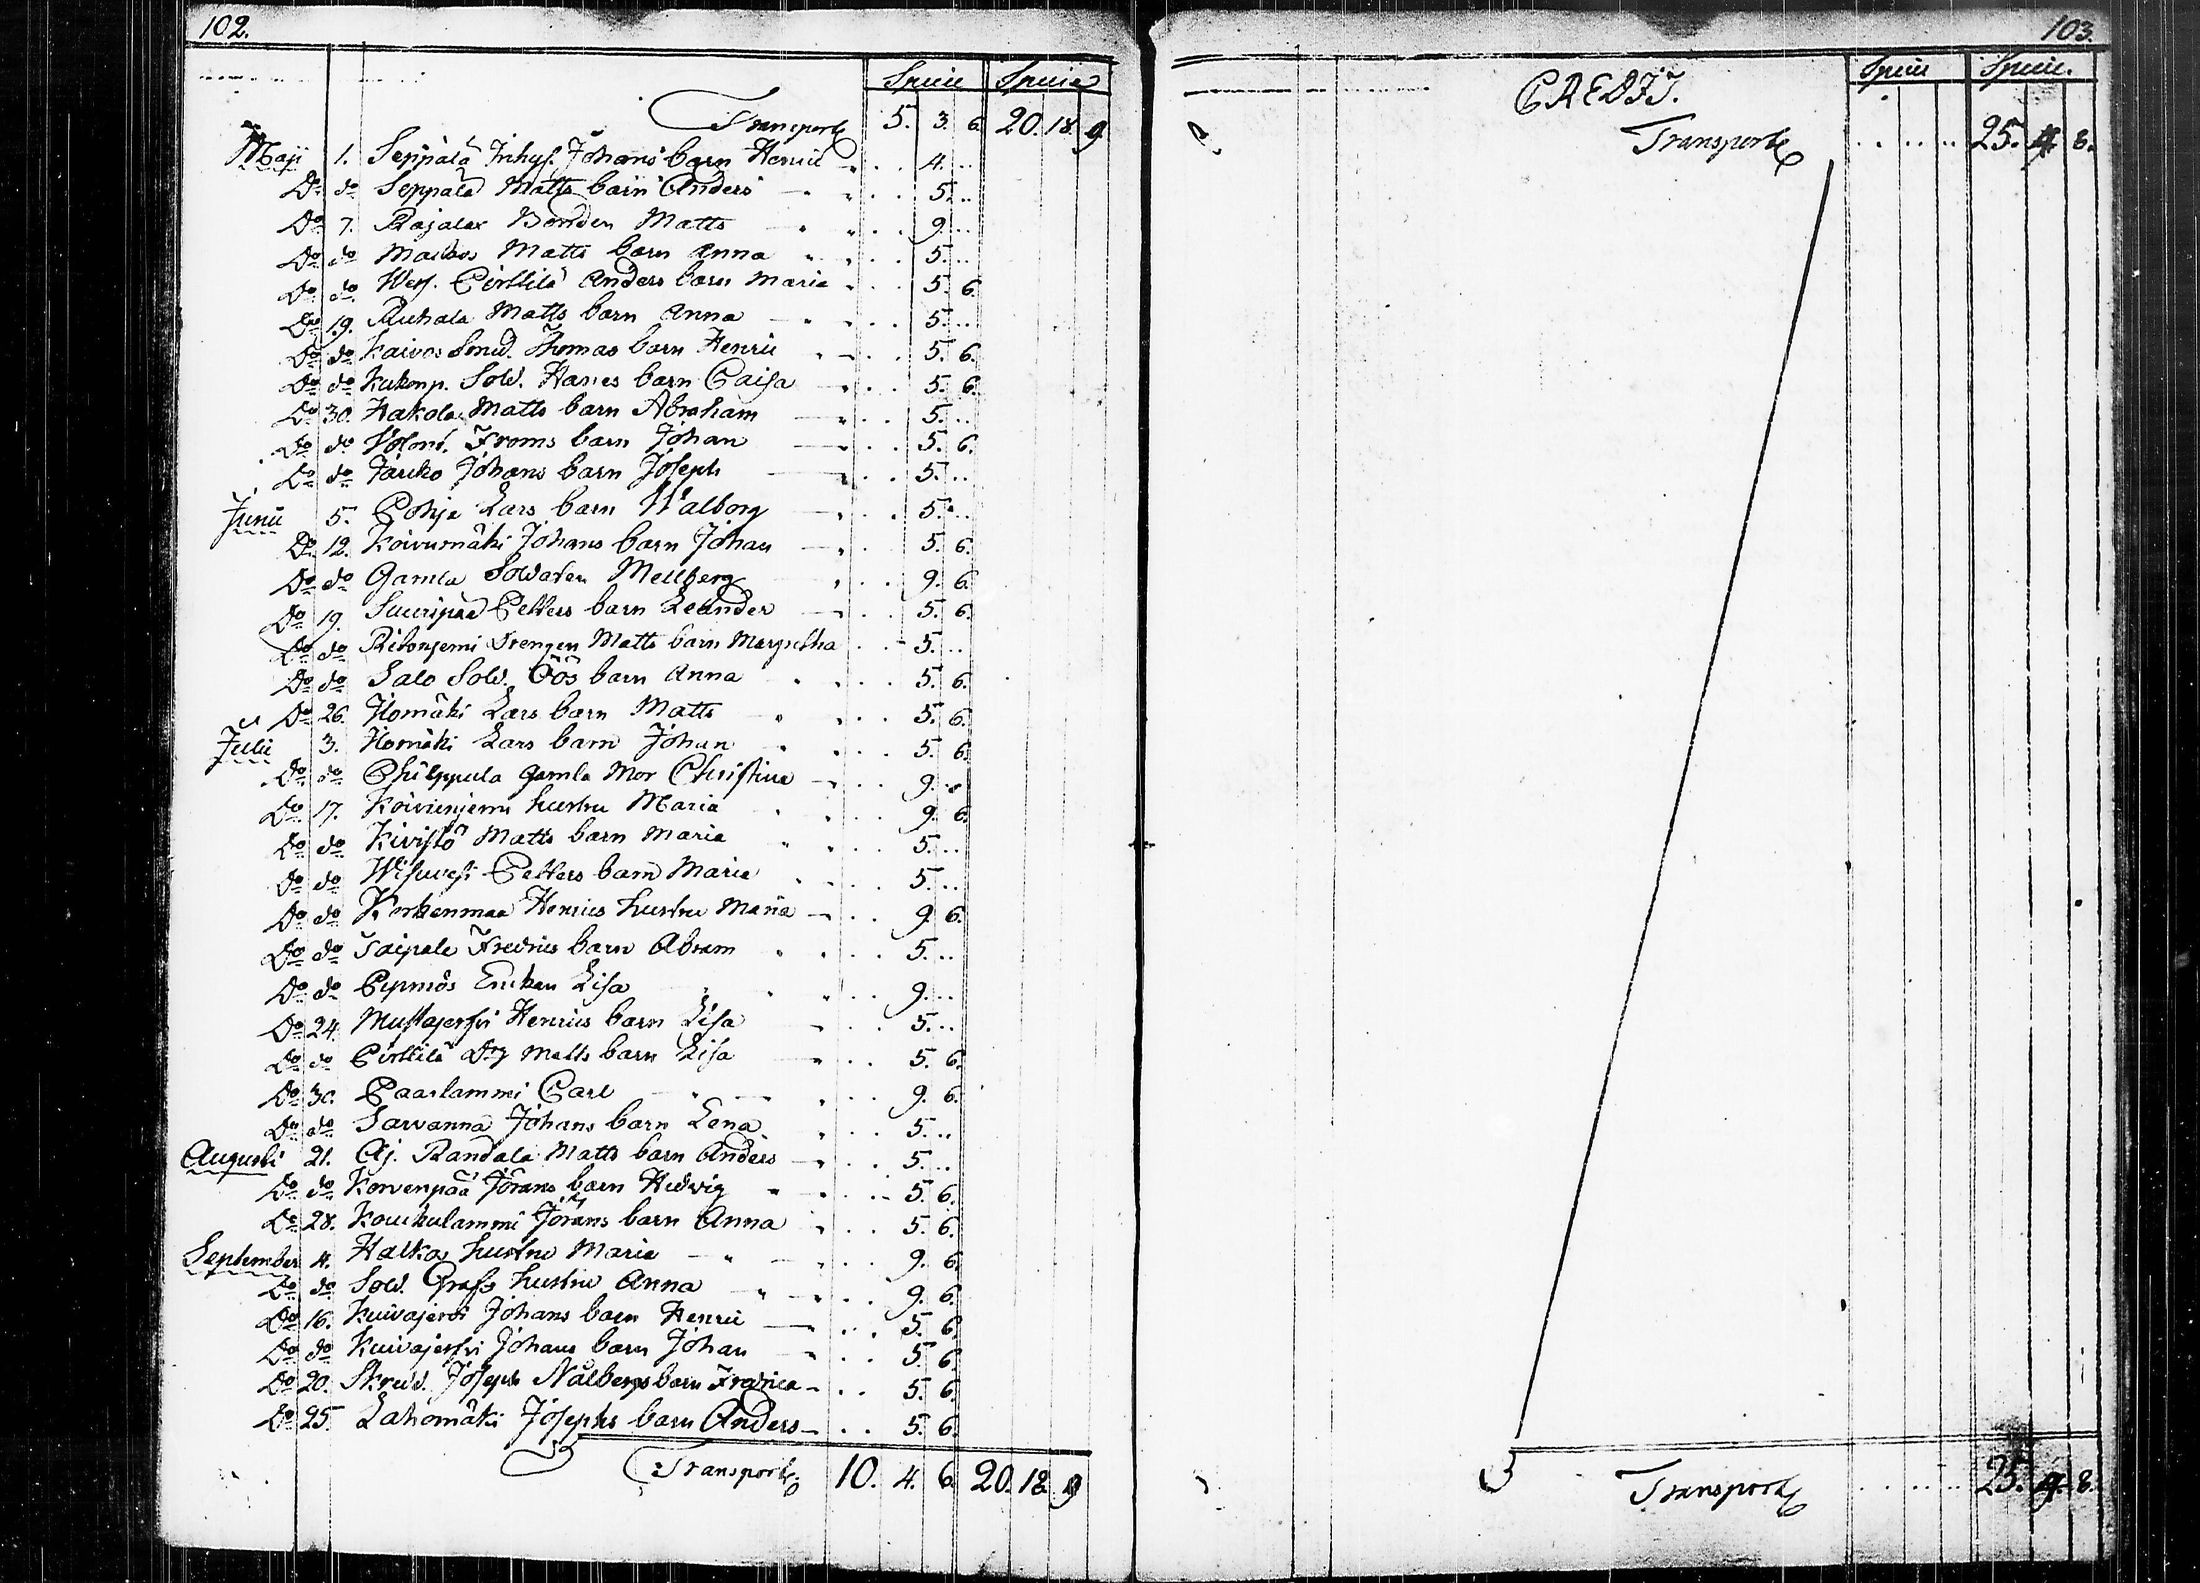 102.
Specie Specie
Transport 5. 3. 6. 20. 18. 9
Maji 1. Seppälä Inhys. Johans barn Henric 4.
Do do Seppälä Matts barn Anders 5.
Do 7. Rajalax Bonden Matts 9.
Do do Matts barn Anna 5.
Do do Pirttilä Anders barn Maria 5. 6.
Do 19. Ruhala Matts barn Anna 5.
Do do Kaivos Smed. Thomas barn Henric 5. 6.
Do do Kukonp. Sold. Hanes barn Caisa 5. 6.
Do 30. Hakola Matts barn Abraham 5.
Do do Froms barn Johan 5. 6.
Do do Johans barn Joseph 5.
Junii 5. Pohja Lars barn Walborg 5.
Do 12. Koivumäki Johans barn Johan 5. 6.
Do do Gamla Soldaten Mellberg 9. 6.
Do 19. Suuripää Petters barn Leander 5. 6.
Do do Drengen Matts barn Margretha 5.
Do do Salo Sold. Öös barn Anna 5. 6.
Do 26. Homäki Lars barn Matts 5. 6.
Julii 3. Homäki Lars barn Johan 5. 6.
Do do Philppula gamla Mor Christina 9.
Do 17. Koivunjemi hustru Maria 9. 6.
Do do Kivistö Matts barn Maria 5.
Do do Wisuvesi Petters barn Maria 5.
Do do Korkenmaa Henrics hustru Maria 9. 6.
Do do Taipale Fredrics barn Abram 5.
Do do Enkan Lisa 9.
Do 24. Mustajerfvi Henrics barn Lisa 5.
Do do Pirttilä Drg Matts barn Lisa 5. 6.
Do 30. Paaslammi Carl 9. 6.
Do do Sarvanna Johans barn Lena 5.
Augusti 21. Aj. Randala Matts barn Anders 5.
Do do Korvenpää Jörans barn Hedvig 5. 6.
Do 28. Koukulammi Jörans barn Anna 5. 6.
September 4. Halkos hustru Maria 9. 6.
Do do Sold. Grafs hustru Anna 9. 6.
Do 16. Kuivajervi Johans barn Henric 5. 6.
Do do Kuivajerfvi Johans barn Johan 5. 6.
Do 20. Skred. Joseph Nålbergs barn Fredrica 5. 6.
Do 25. Lahomäki Josephs barn Anders 5. 6.
Transport 10. 4. 6. 20. 18. 9
103.
CREDIT.
Specie Specie.
Transport 25. 9. 8.
Transport 25. 9. 8.